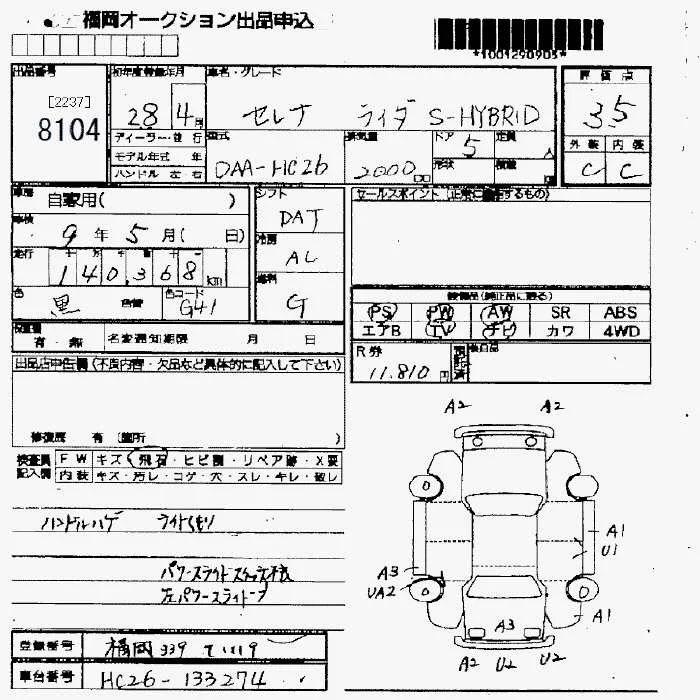 福岡オークション出品申込
*1001290903*
出品番号
[2237]
8104
初年度登録年月
28 4月
ディーラー・並行
モデル年式 年
ハンドル 左・右
車名・グレード
セレナ ライダー S-HYBRID
型式
DAA-HC26
排気量
2000
ドア 5
形状
定員 人
積載
評価点
3.5
外装 内装
C C
車歴
自家用( )
車検
9年 5月( 日)
走行
140,368 km
色
黒
色替
色コード
G41
シフト
DAT
冷房
AC
燃料
G
セールスポイント (正常に作動するもの)
装備品(純正品に限る)
PS PW AW SR ABS
エアB TV ナビ カワ 4WD
R券
11,810円
預託済
後日品
有・無
名変通知期限 月 日
出品店申告欄(不良内容・欠品など具体的に記入して下さい)
修復歴 有 (箇所 )
検査員記入欄
FW キズ・飛石・ヒビ割・リペア跡・X要
内装 キズ・汚レ・コゲ・穴・スレ・キレ・破レ
ハンドルハゲ ライトくもり
左パワースライドア
A2 A2
A1
U1
A3
UA2
A1
A3
A2 U2 U2
登録番号
福岡 339
車台番号
HC26-133274